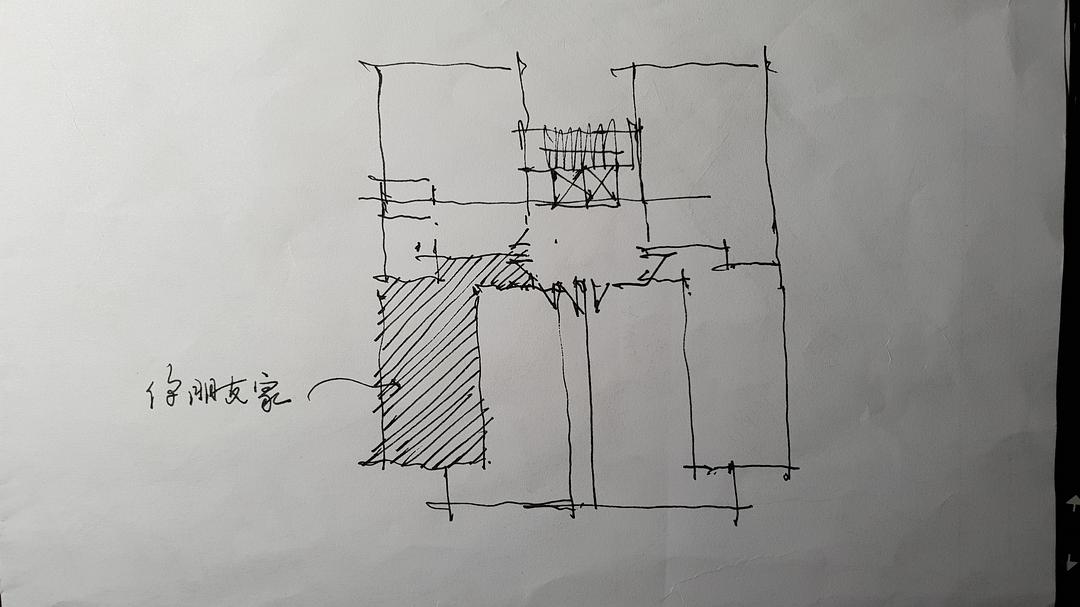 你朋友家